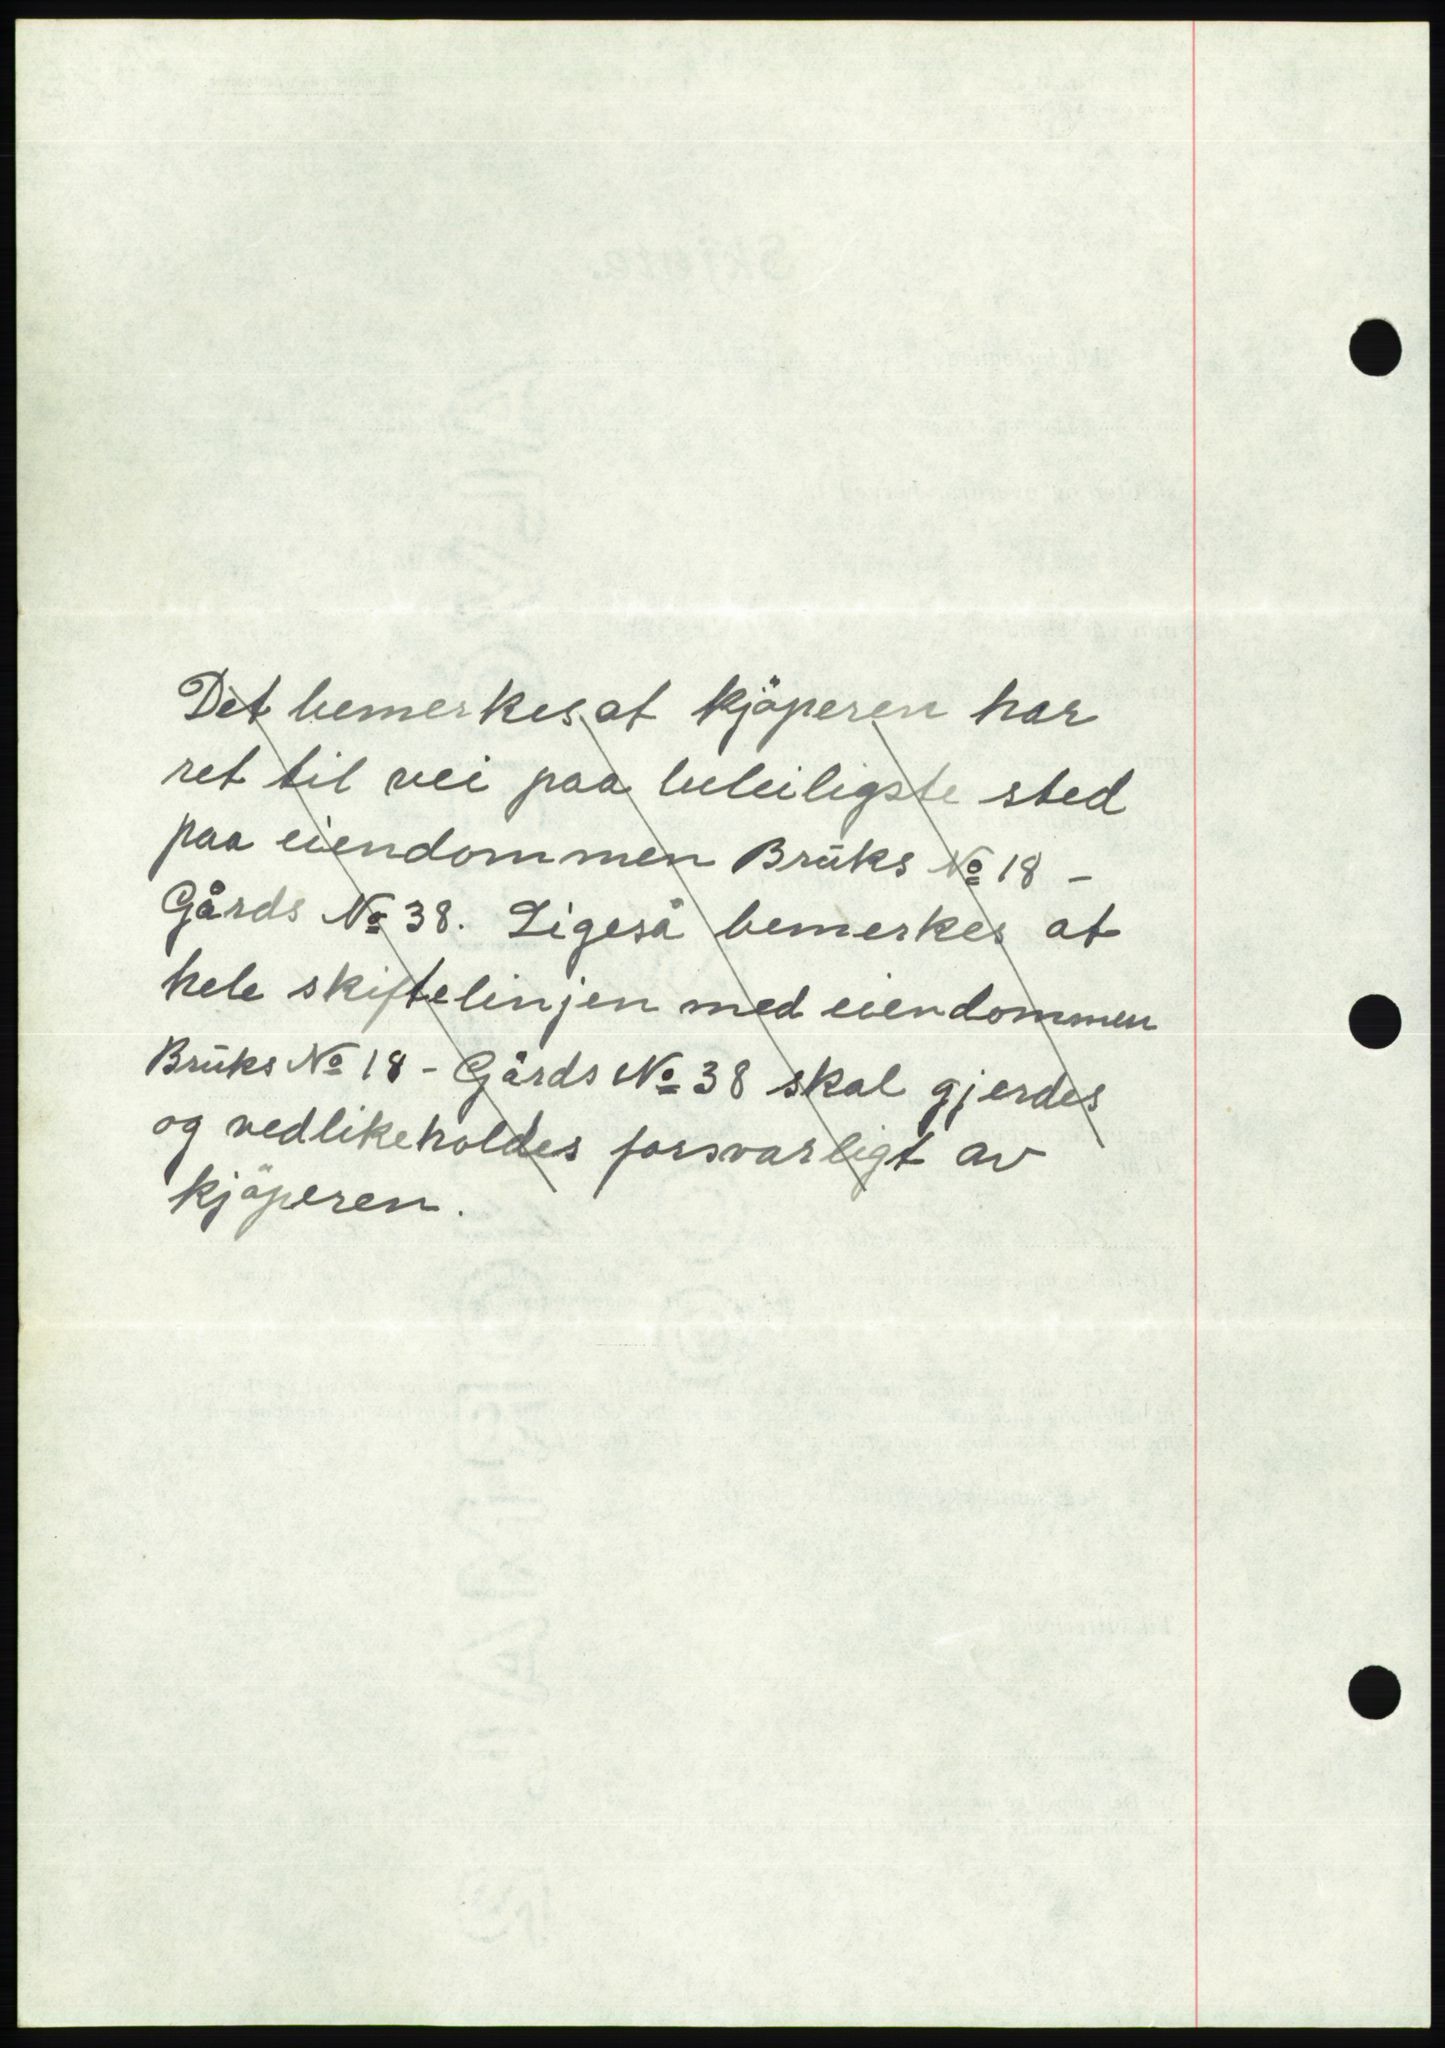 Det bemerkes at kjöperen har
ret til vei paa beleiligste sted
paa eiendommen Brŭks No 18 -
Gårds No 38. Ligeså bemerkes at
hele skiftelinjen med eiendommen
Brŭks No 18 - Gårds No 38 skal gjerdes
og vedlikeholdes forsvarligt av
kjöperen.